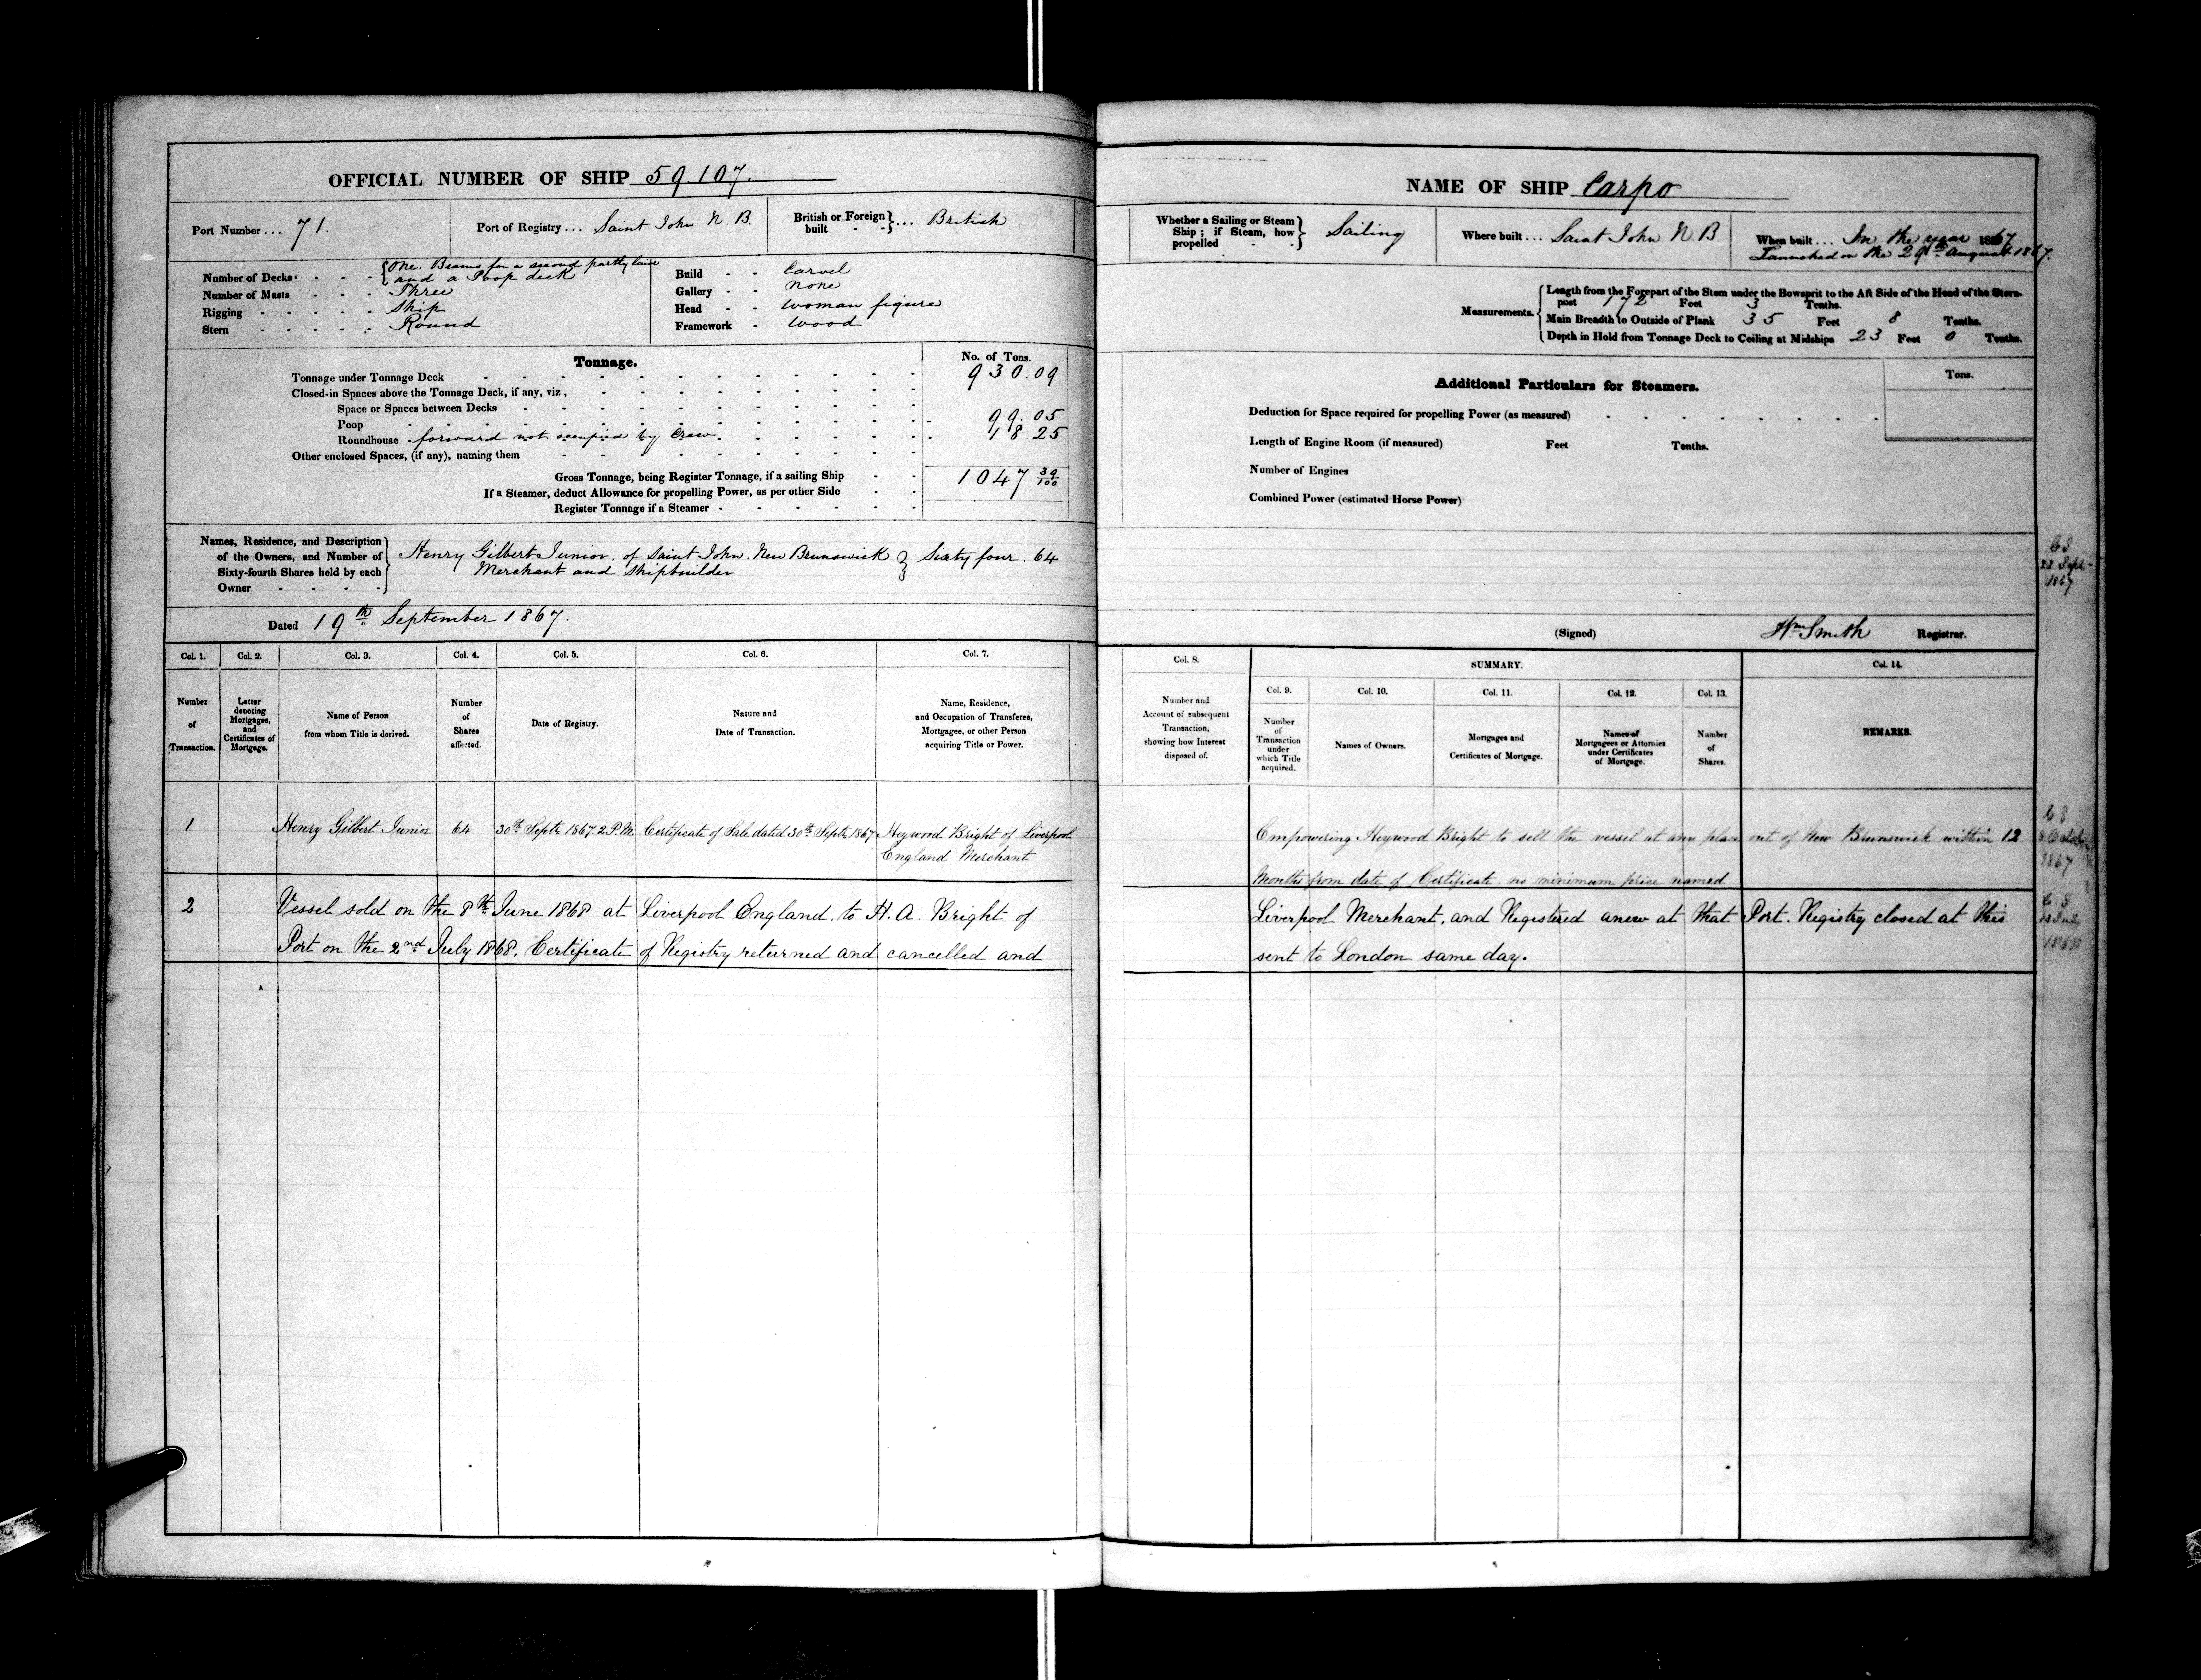 OFFICIAL NUMBER OF SHIP 59.107.
Port Number ... 71.
Port of Registry ... Saint John N. B.
British or Foreign built - - } ... British
Number of Decks - - - { One. Beams for a second partly laid
and a Poop deck
Number of Masts - - - Three
Rigging - - - - - Ship
Stern - - - - - Round
Build - - Carvel
Gallery - - none
Head - - Woman figure
Framework - Wood
Tonnage.
No. of Tons.
Tonnage under Tonnage Deck 930.09
Closed-in Spaces above the Tonnage Deck, if any, viz,
Space or Spaces between Decks
Poop 99.05
Roundhouse forward not occupied by Crew 18.25
Other enclosed Spaces, (if any), naming them
Gross Tonnage, being Register Tonnage, if a sailing Ship 1047 39/100
If a Steamer, deduct Allowance for propelling Power, as per other Side
Register Tonnage if a Steamer
Names, Residence, and Description
of the Owners, and Number of
Sixty-fourth Shares held by each
Owner - - - -
Henry Gilbert Junior, of Saint John. New Brunswick } Sixty four. 64
Merchant and Shipbuilder
Dated 19th September 1867.
Col. 1.
Number
of
Transaction.
Col. 2.
Letter
denoting
Mortgages,
and
Certificates of
Mortgage.
Col. 3.
Name of Person
from whom Title is derived.
Col. 4.
Number
of
Shares
affected.
Col. 5.
Date of Registry.
Col. 6.
Nature and
Date of Transaction.
Col. 7.
Name, Residence,
and Occupation of Transferee,
Mortgagee, or other Person
acquiring Title or Power.
1 Henry Gilbert Junior 64 30th Septr 1867. 2 P.M. Certificate of Sale dated 30th Septr 1867 Heywood Bright of Liverpool
England Merchant
2 Vessel sold on the 8th June 1868 at Liverpool England. to H. A. Bright of
Port on the 2nd July 1868. Certificate of Registry returned and cancelled and
NAME OF SHIP Carpo
Whether a Sailing or Steam
Ship; if Steam, how
propelled - - } Sailing
Where built ... Saint John N. B.
When built ... In the year 1867
Launched on the 29th August 1867.
Measurements.
Length from the Forepart of the Stem under the Bowsprit to the Aft Side of the Head of the Stern-
post 172 Feet 3 Tenths.
Main Breadth to Outside of Plank 35 Feet 8 Tenths.
Depth in Hold from Tonnage Deck to Ceiling at Midships 23 Feet 0 Tenths.
Additional Particulars for Steamers.
Tons.
Deduction for Space required for propelling Power (as measured)
Length of Engine Room (if measured) Feet Tenths.
Number of Engines
Combined Power (estimated Horse Power)
C S
Sept
1867
(Signed) Wm Smith Registrar.
Col. 8.
Number and
Account of subsequent
Transaction,
showing how Interest
disposed of.
SUMMARY.
Col. 9.
Number
of
Transaction
under
which Title
acquired.
Col. 10.
Names of Owners.
Col. 11.
Mortgages and
Certificates of Mortgage.
Col. 12.
Names of
Mortgagees or Attornies
under Certificates
of Mortgage.
Col. 13.
Number
of
Shares.
Col. 14.
REMARKS.
Empowering Heywood Bright to sell the vessel at any place out of New Brunswick within 12
Months from date of Certificate. no minimum price named
C S
8 October
1867
Liverpool Merchant, and Registered anew at that Port. Registry closed at this
sent to London same day.
C S
July
1868